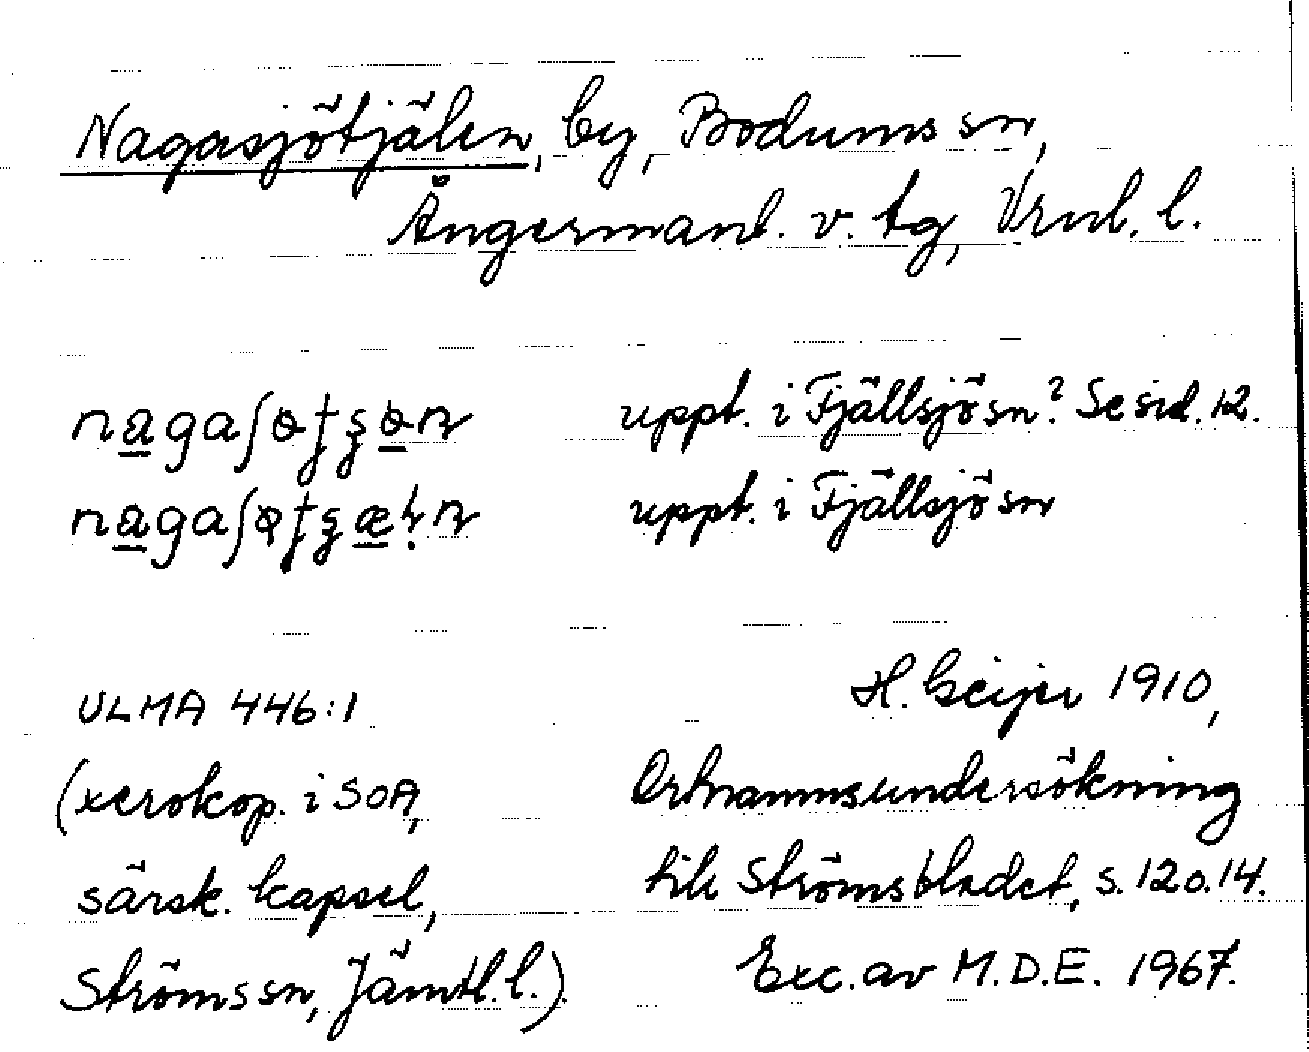 Nagasjötjälen, by, Bodums sn,
Ångermanl. v. tg, Vrnl. l.
uppt. i Fjällsjö sn? Se sid. 12.
uppt. i Fjällsjö sn
ULMA 446:1 H. Geijer 1910,
(xerokop. i SOA, Ortnamnsundersökning
särsk. kapsel, till Strömsbladet, s. 12 o. 14.
Ströms sn, Jämtl. l.) Exc. av M.D.E. 1967.